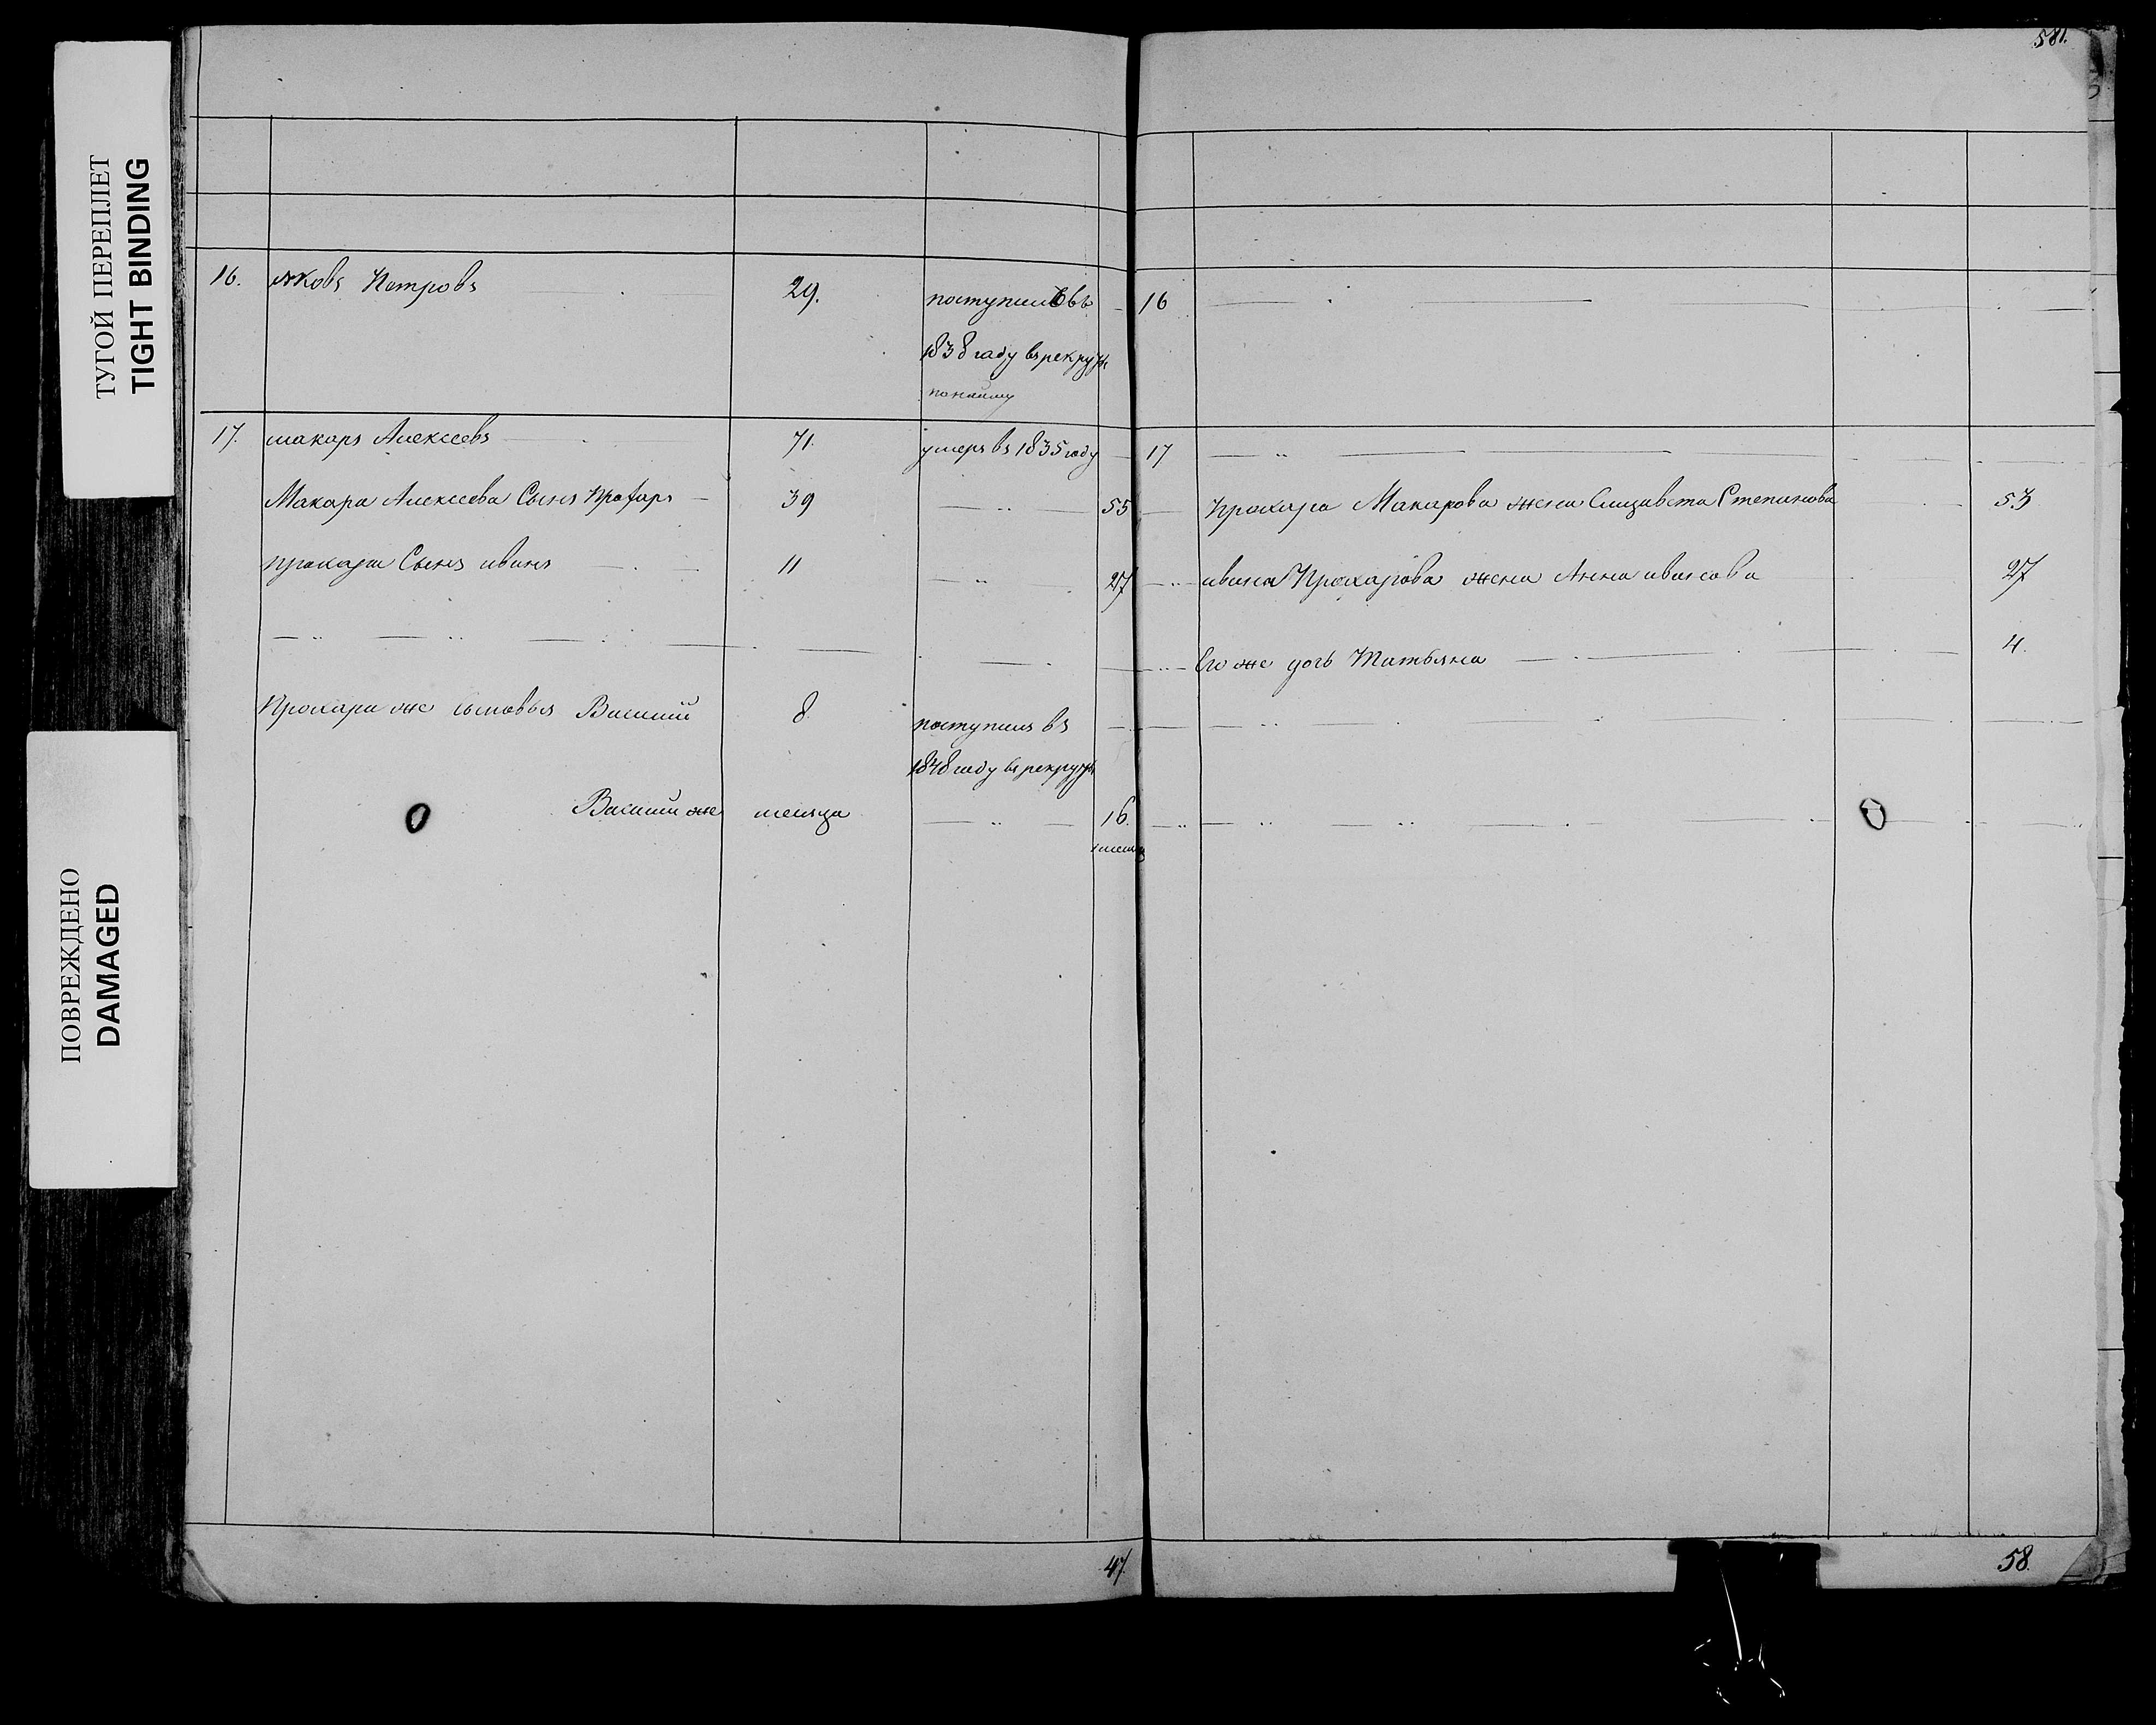 ТУГОЙ ПЕРЕПЛЕТ
TIGHT BINDING
ПОВРЕЖДЕНО
DAMAGED
581.
16. яковъ Петровъ 29. поступилъ въ 16
1838 году в рекруты
по найму
17. макаръ Алексеевъ 71. умеръ въ 1835 году 17
Макара Алексеева Сынъ Прохаръ 39 55 Прохара Макарова жена Елизавета Степанова 53
прохара Сынъ иванъ 11 27 ивана Прохарова жена Анна иванова 27
Его же дочь Татьяна 4.
Прохара же сыновья Василий 8 поступилъ въ
1848 году в рекруты
Василий же месяца 16.
47. 58.